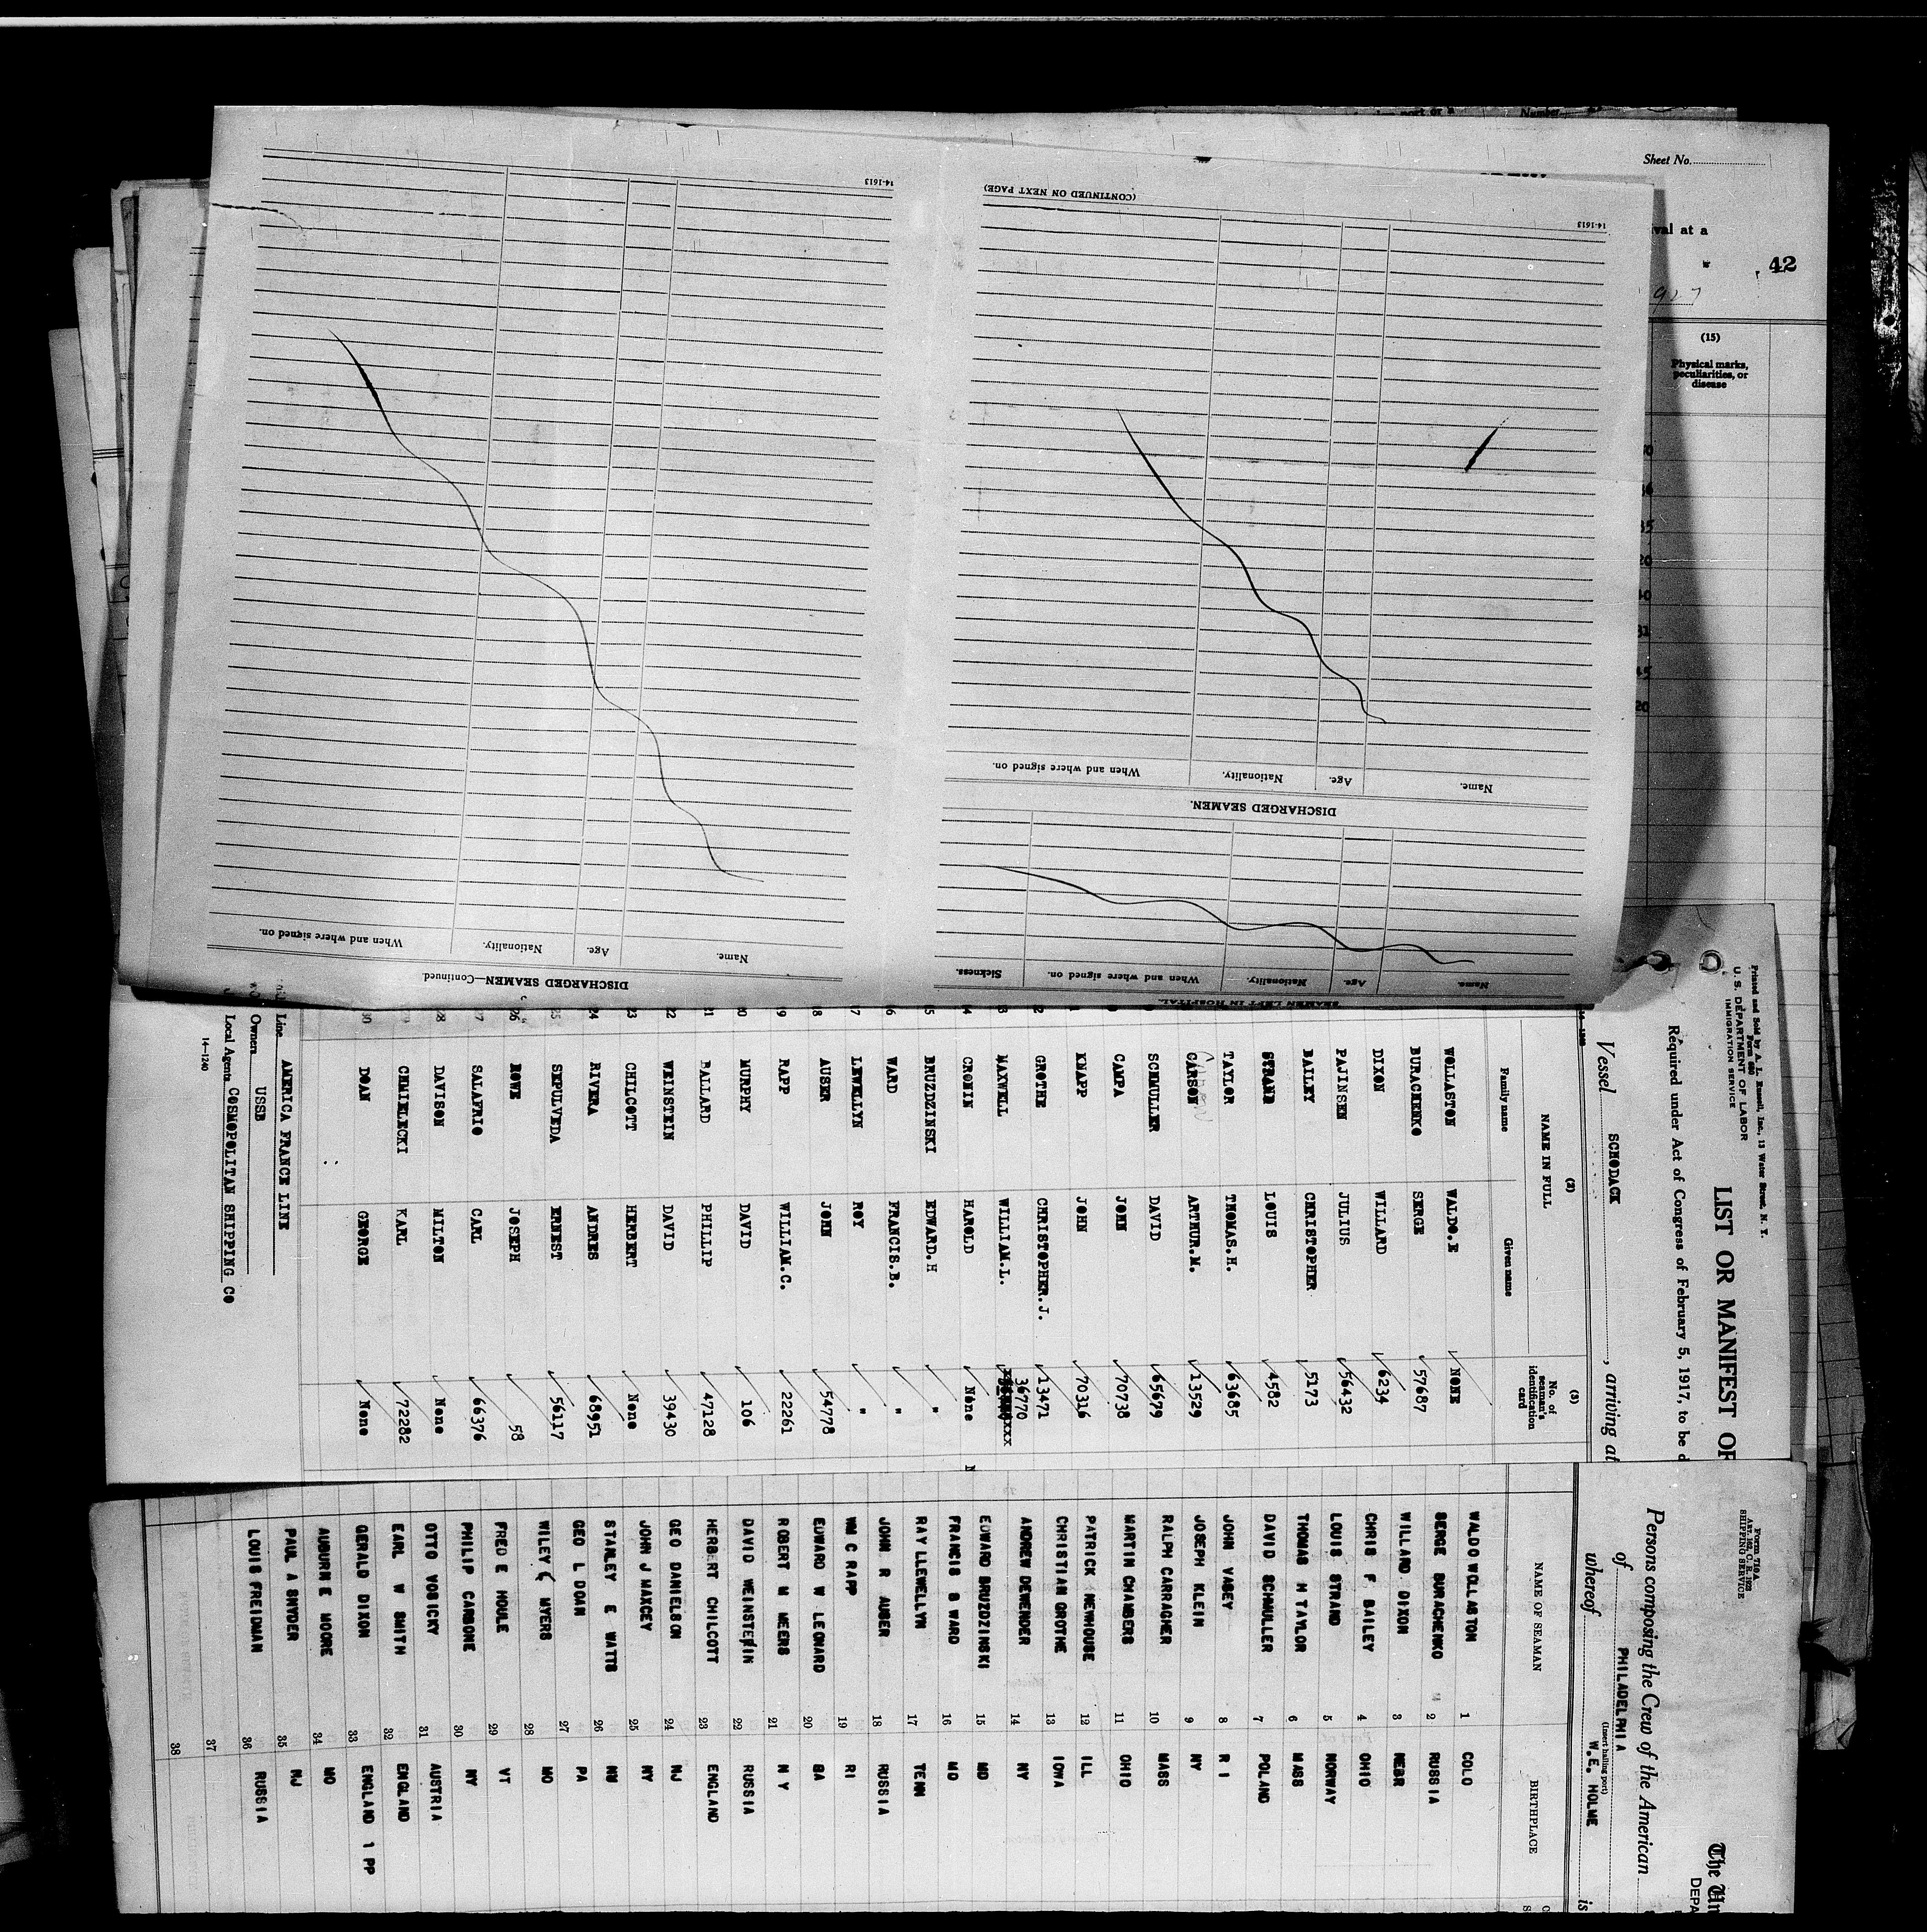 Sheet No.
val at a
42
(15)
Physical marks, peculiarities, or disease
14-1613
(CONTINUED ON NEXT PAGE)
14-1613
Name. Age. Nationality. When and where signed on.
DISCHARGED SEAMEN.
Name. Age. Nationality. When and where signed on. Sickness.
SEAMEN LEFT IN HOSPITAL.
Name. Age. Nationality. When and where signed on.
DISCHARGED SEAMEN—Continued
Printed and Sold by A. L. Russell, Inc., 13 Water Street, N. Y.
Form 680
U. S. DEPARTMENT OF LABOR
IMMIGRATION SERVICE
LIST OR MANIFEST OF
Required under Act of Congress of February 5, 1917, to be d
Vessel SCHODACK, arriving at
(2) (3)
NAME IN FULL
No. of seaman's identification card
Family name Given name
WOLLASTON WALDO.E NONE
BURACHENKO SERGE 57687
DIXON WILLARD 6234
PAJINSEN JULIUS 56432
BAILEY CHRISTOPHER 5173
STRAND LOUIS 4582
TAYLOR THOMAS.H. 63685
CARSON ARTHUR.M. 13529
SCHMULLER DAVID 65679
CAMPA JOHN 70738
KNAPP JOHN 70316
12 GROTHE CHRISTOPHER.J. 13471
13 MAXWELL WILLIAM.L. 36770
14 CRONIN HAROLD None
15 BRUZDZINSKI EDWARD.H "
16 WARD FRANCIS.B. "
17 LEWELLYN ROY "
18 AUSER JOHN 54778
19 RAPP WILLIAM.C. 22261
20 MURPHY DAVID 106
21 BALLARD PHILLIP 47128
22 WEINSTEIN DAVID 39430
23 CHILCOTT HERBERT None
24 RIVERA ANDRES 68951
25 SEPULVEDA ERNEST 56117
26 ROWE JOSEPH 58
27 SALAFRIO CARL 66376
28 DAVISON MILTON None
29 CHMIELECKI KARL 72282
30 DOAN GEORGE None
Line AMERICA FRANCE LINE
Owners USSB
Local Agents COSMOPOLITAN SHIPPING CO
14-1240
Form 710 A
SHIPPING SERVICE
The Un
DEPA
Persons composing the Crew of the American
of PHILADELPHIA
(Insert hailing port)
whereof W.E. HOLME is
NAME OF SEAMAN BIRTHPLACE
WALDO WOLLASTON 1 COLO
SERGE BURACHENKO 2 RUSSIA
WILLARD DIXON 3 NEBR
CHRIS F BAILEY 4 OHIO
LOUIS STRAND 5 NORWAY
THOMAS H TAYLOR 6 MASS
DAVID SCHMULLER 7 POLAND
JOHN VASEY 8 R I
JOSEPH KLEIN 9 NY
RALPH CARRAGHER 10 MASS
MARTIN CHAMBERS 11 OHIO
PATRICK NEWHOUSE 12 ILL
CHRISTIAN GROTHE 13 IOWA
ANDREW DEWENDER 14 NY
EDWARD BRUZDZINSKI 15 MD
FRANCIS B WARD 16 MD
RAY LLEWELLYN 17 TENN
JOHN R AUSER 18 RUSSIA
WM C RAPP 19 RI
EDWARD W LEONARD 20 GA
ROBERT M MEERS 21 N Y
DAVID WEINSTEIN 22 RUSSIA
HERBERT CHILCOTT 23 ENGLAND
GEO DANIELSON 24 NJ
JOHN J MAXCEY 25 NY
STANLEY E WATTS 26 NM
GEO L DOAN 27 PA
WILEY C MYERS 28 MO
FRED E HOULE 29 VT
PHILIP CARBONE 30 NY
OTTO VOSICKY 31 AUSTRIA
EARL W SMITH 32 ENGLAND
GERALD DIXON 33 ENGLAND 1 PP
AUBURN E MOORE 34 MO
PAUL A SNYDER 35 NJ
LOUIS FREIDMAN 36 RUSSIA
37
38